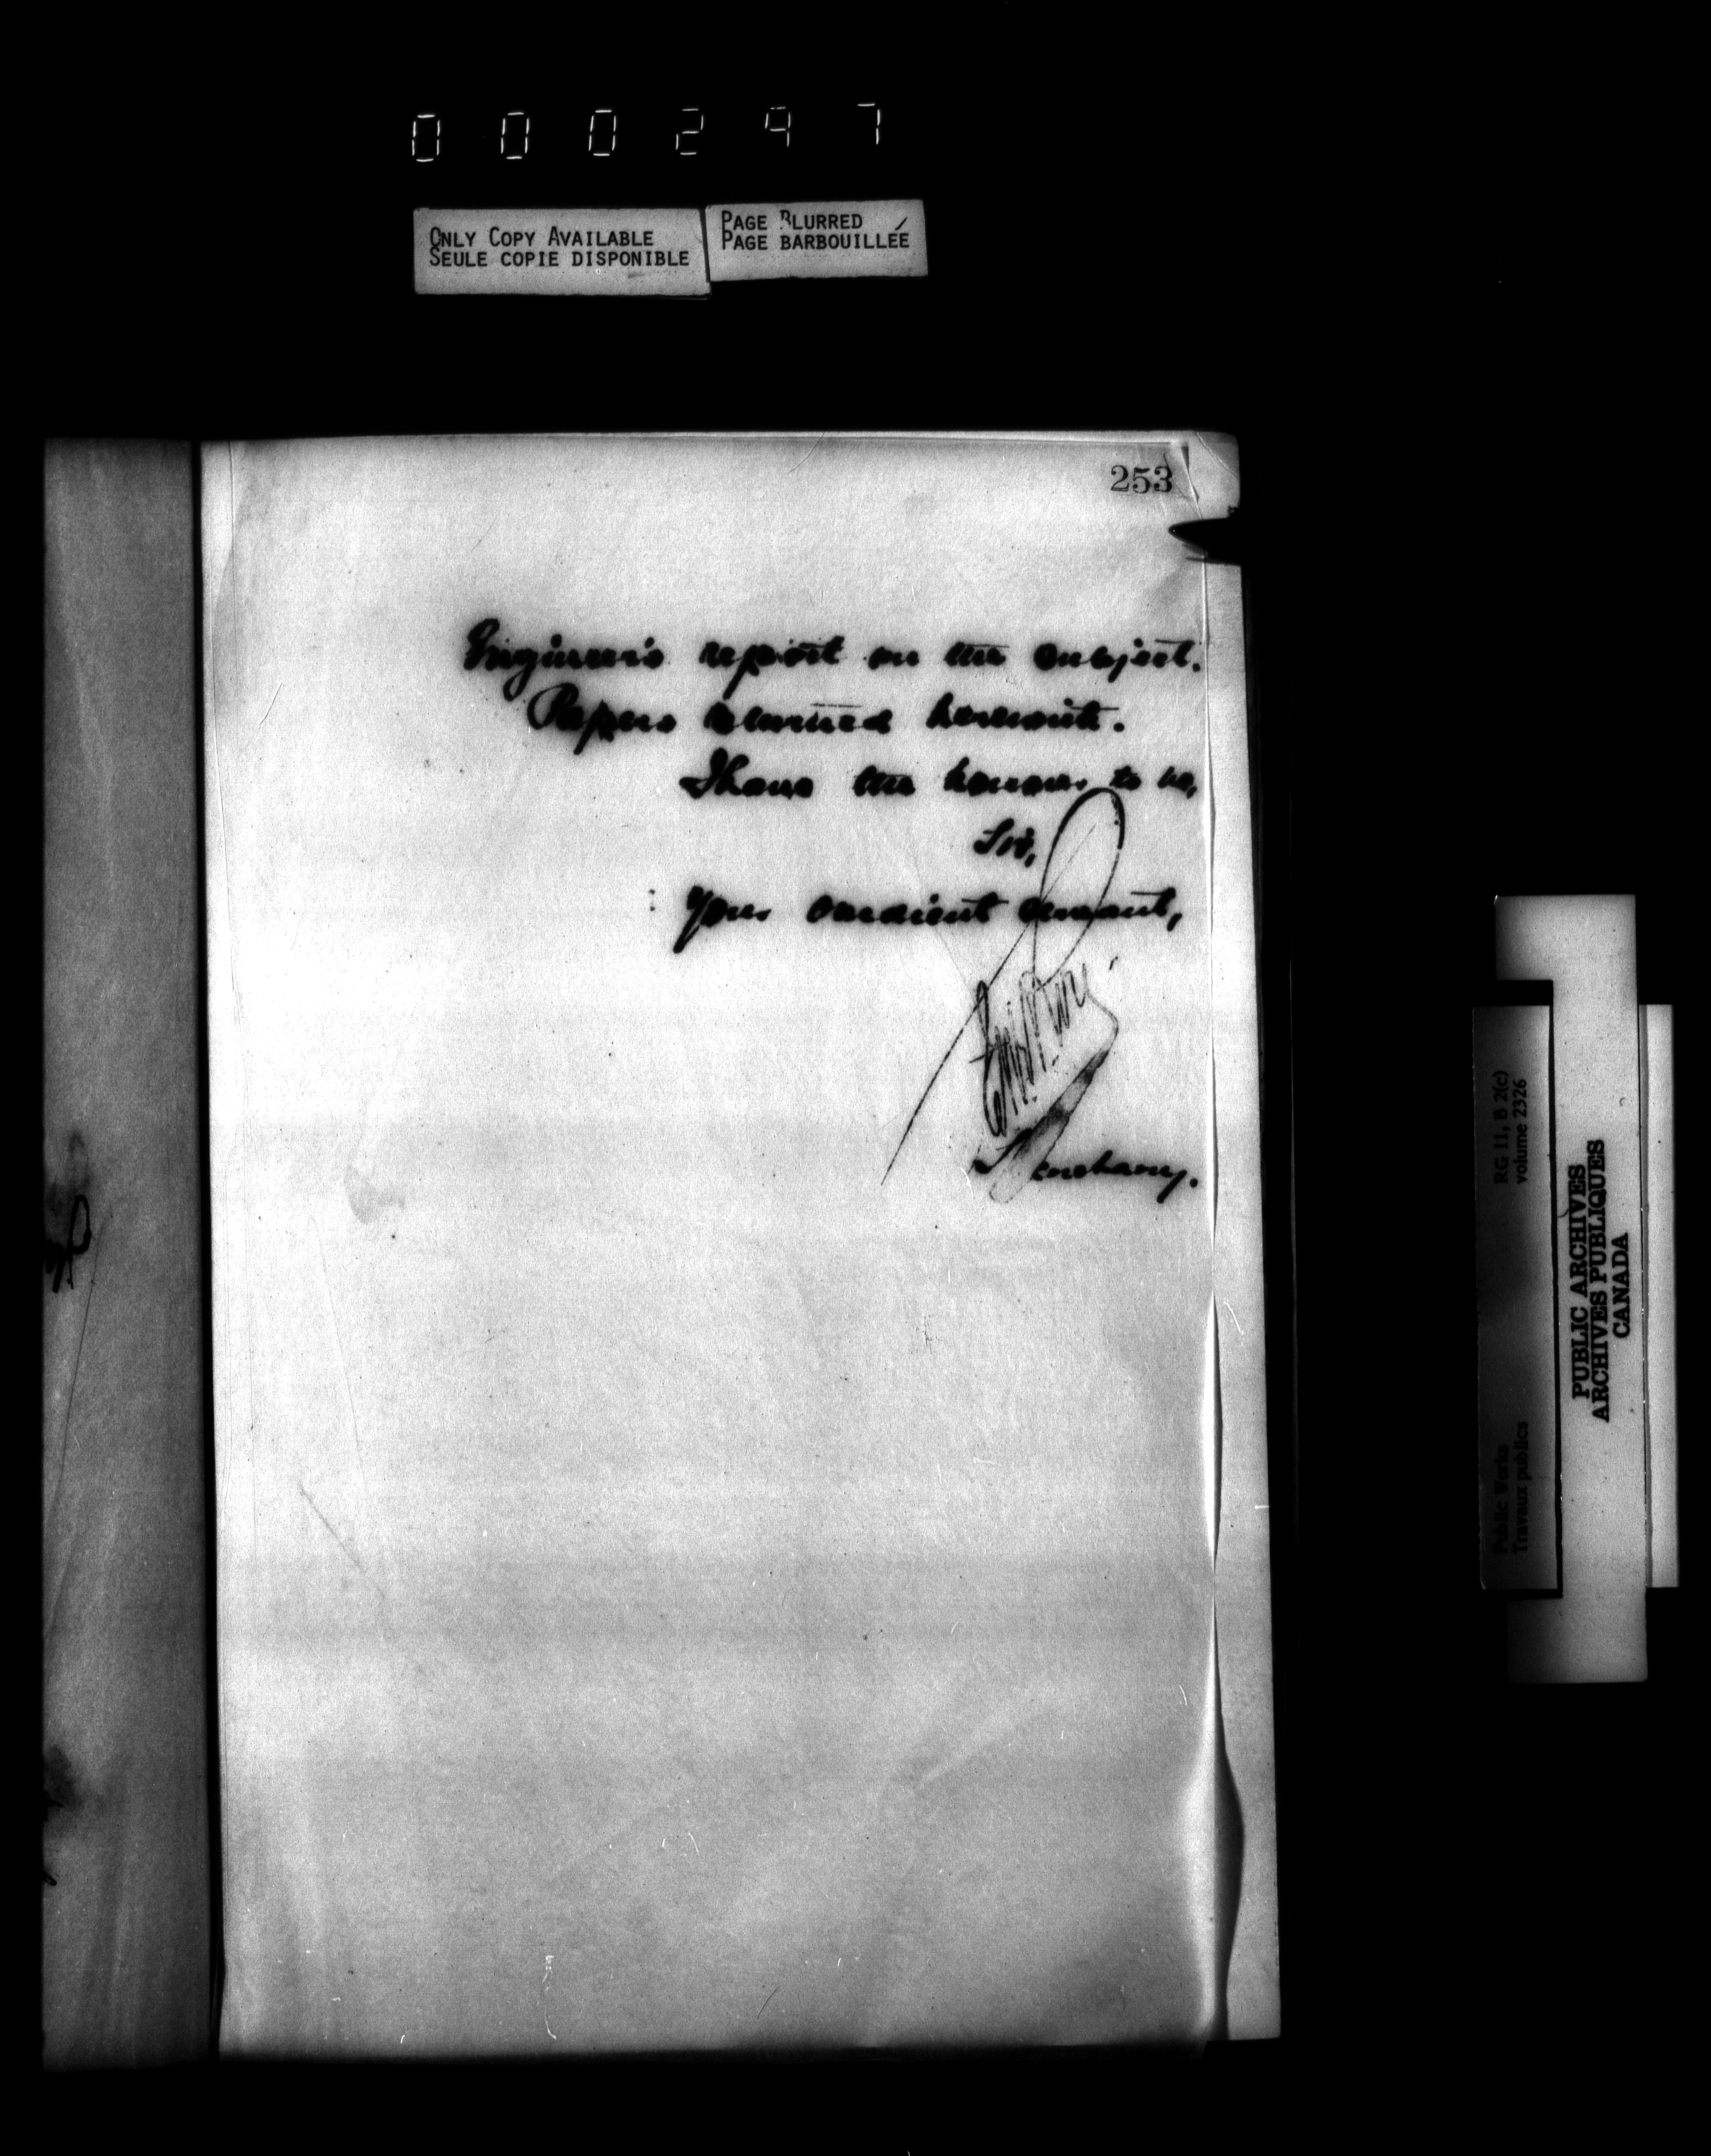 000297
ONLY COPY AVAILABLE
SEULE COPIE DISPONIBLE
PAGE BLURRED
PAGE BARBOUILLÉE
253
Engineer's report on the subject.
Papers returned herewith.
I have the honour to be,
Sir,
Your obedient servant,
Secretary.
RG 11, B 2(c)
volume 2326
Public Works
Travaux publics
PUBLIC ARCHIVES
ARCHIVES PUBLIQUES
CANADA